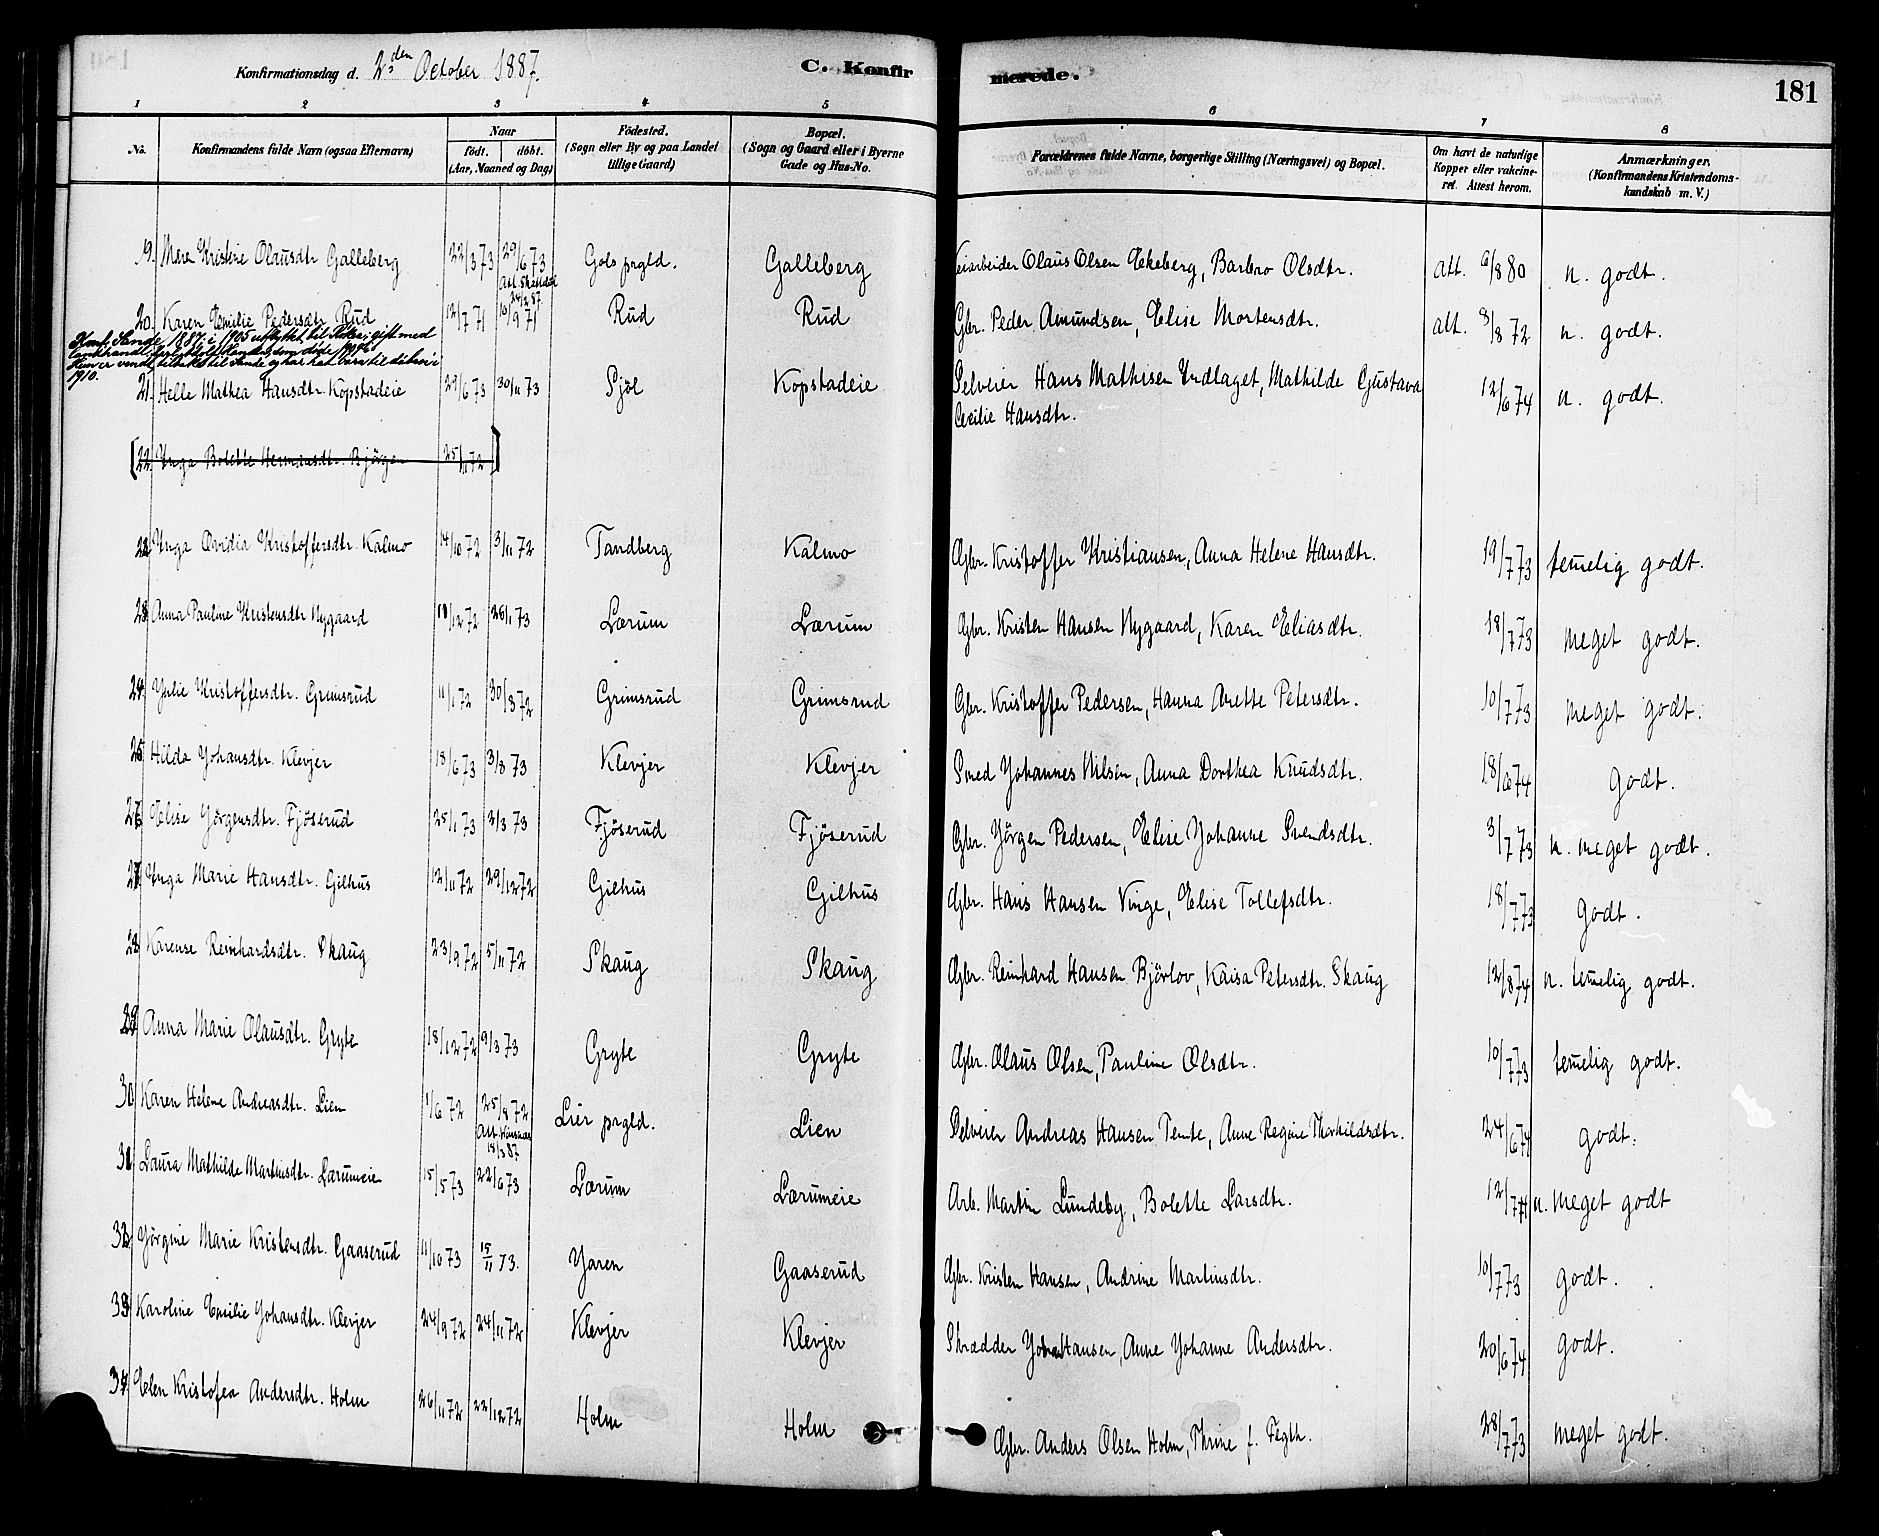 Konfirmationsdag d. 2den October 1887.
C. Konfirmerede.
181
1 2 3 4 5 6 7 8
No.
Konfirmandens fulde Navn (ogsaa Efternavn)
Naar
födt. döbt.
(Aar, Maaned og Dag)
Födested.
(Sogn eller By og paa Landet
tillige Gaard)
Bopæl.
(Sogn og Gaard eller i Byerne
Gade og Hus-No.
Forældrenes fulde Navne, borgerlige Stilling (Næringsvei) og Bopæl.
Om havt de naturlige
Kopper eller vakcine-
ret. Attest herom.
Anmærkninger.
(Konfirmandens Kristendoms-
kundskab m. V.)
19. Kristine Olausdtr Galleberg 22/3 73 29/6 73 Gols prgld. Galleberg Olaus Olsen Ekeberg, Barbro Olsdtr. att. 6/8 80 n. godt.
20. Karen Emilie Pedersdtr Rud 12/7 71 10/9 71 Rud Rud Gbr. Peder Amundsen, Elise Mortensdtr. att. 8/8 72 n. godt.
Konf. Sande 1887; i 1905 gift med
1910.
21. Helle Mathea Hansdtr. Kopstadeie 29/6 73 30/11 73 Sjöl Kopstadeie Selveier Hans Mathisen Indlaget, Mathilde Gustava 12/6 74 n. godt.
Cecilie Hansdtr.
[22. Inga Bolette Hermansdtr. Björge 25/1 72]
22 Inga Ovidia Kristoffersdtr. Kalmo 14/10 72 3/11 72 Tandberg Kalmo Gbr. Kristoffer Kristiansen, Anna Helene Hansdtr. 19/7 73 temelig godt.
23 Anna Pauline Kristensdtr Nygaard 10/12 72 26/1 73 Lærum Lærum Gbr. Kristen Hansen Nygaard, Karen Eliasdtr. 18/7 73 meget godt.
24. Julie Kristoffersdtr. Grimsrud 11/1 72 30/3 72 Grimsrud Grimsrud Gbr. Kristoffer Pedersen, Hanna Anette Petersdtr. 10/7 73 meget godt.
25 Hilda Johansdtr. Klevjer 18/6 73 3/8 73 Klevjer Klevjer Smed Johannes Nilsen, Anna Dorthea Knudsdtr. 18/6 74 godt.
26 Elise Jörgensdtr. Fjöserud 25/1 73 2/3 73 Fjöserud Fjöserud Gbr. Jörgen Pedersen, Elise Johanne Svendsdtr. 3/7 73 n. meget godt.
27 Inga Marie Hansdtr. Gilhus 12/11 72 29/12 72 Gilhus Gilhus Gbr. Hans Hansen Vinge, Elise Tollefsdtr. 18/7 73 godt.
28 Karense Reinhardsdtr. Skaug 23/9 72 5/11 72 Skaug Skaug Gbr. Reinhard Hansen Björlov, Kaisa Petersdtr. Skaug 12/8 74 n. temelig godt.
29 Anna Marie Olausdtr. Gryte 18/12 72 9/3 73 Gryte Gryte Gbr. Olaus Olsen, Pauline Olsdtr. 10/7 73 temelig godt.
30 Karen Helene Andreasdtr. Lien 1/6 72 25/8 72 Lier prgld. Lien Selveier Andreas Hansen Temte, Anne Regine Thorkildsdtr. 24/6 74 godt.
18/3 87
31. Laura Mathilde Martinsdtr. Lærumeie 15/5 73 22/6 73 Lærum Lærumeie Arb. Martin Lundeby, Bolette Larsdtr. 12/7 74 n. meget godt
32. Jörgine Marie Kristensdtr. Gaaserud 11/10 73 15/11 73. Jaren Gaaserud Gbr. Kristen Hansen, Andrine Martinsdtr. 10/7 73 godt.
33 Karoline Emilie Johansdtr. Klevjer 24/9 72 24/11 72 Klevjer Klevjer Skrædder Johan Hansen, Anne Johanne Andersdtr. 20/6 74 godt.
34. Elen Kristofea Andersdtr. Holm 26/11 72 22/12 72 Holm Holm Gbr. Anders Olsen Holm, Thrine f. Fegth. 28/7 73 meget godt.